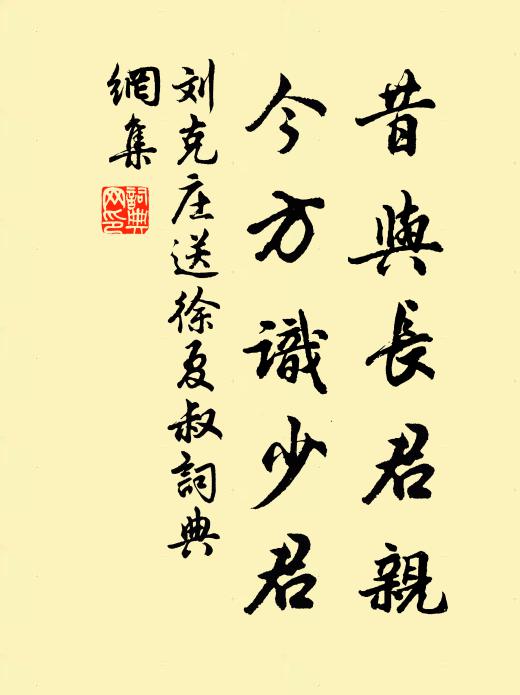 昔與長君親
今方識少君
刘克庄送徐复叔詞典
網集
詞典網印